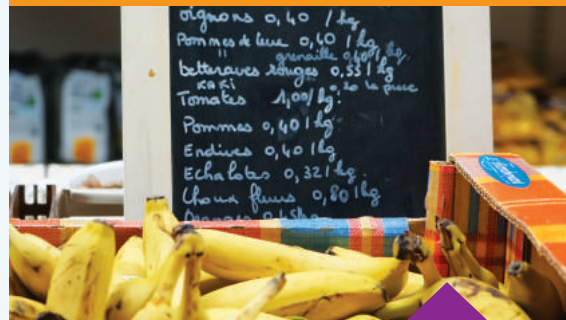 oignons 0,40 /kg
Pommes de terre 0,40 / kg
" grenaille 0,40 / kg.
betteraves rouges 0,55 / kg
KAKI 0,20 la pièce
Tomates 1,00/kg.
Pommes 0,40 / kg
Endives 0,40 / kg
Echalotes 0,32 / kg.
Choux fleurs 0,80 / kg
Oranges 0,45kg